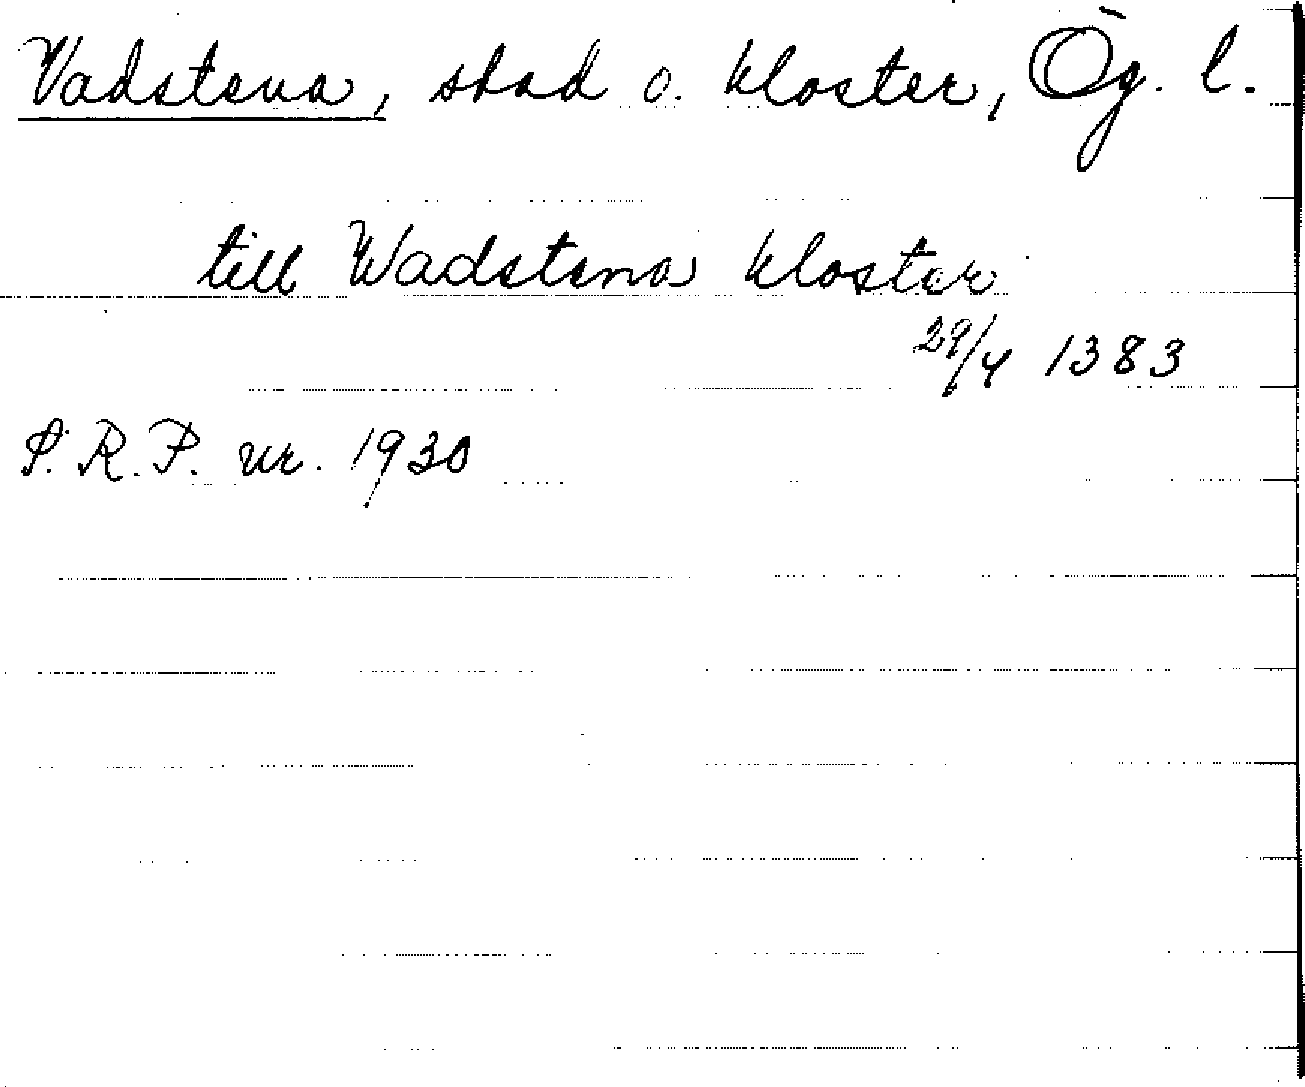 Vadstena, stad o. kloster, Ög. l.
till Wadstena kloster
29/4 1383
S. R. P. nr. 1930